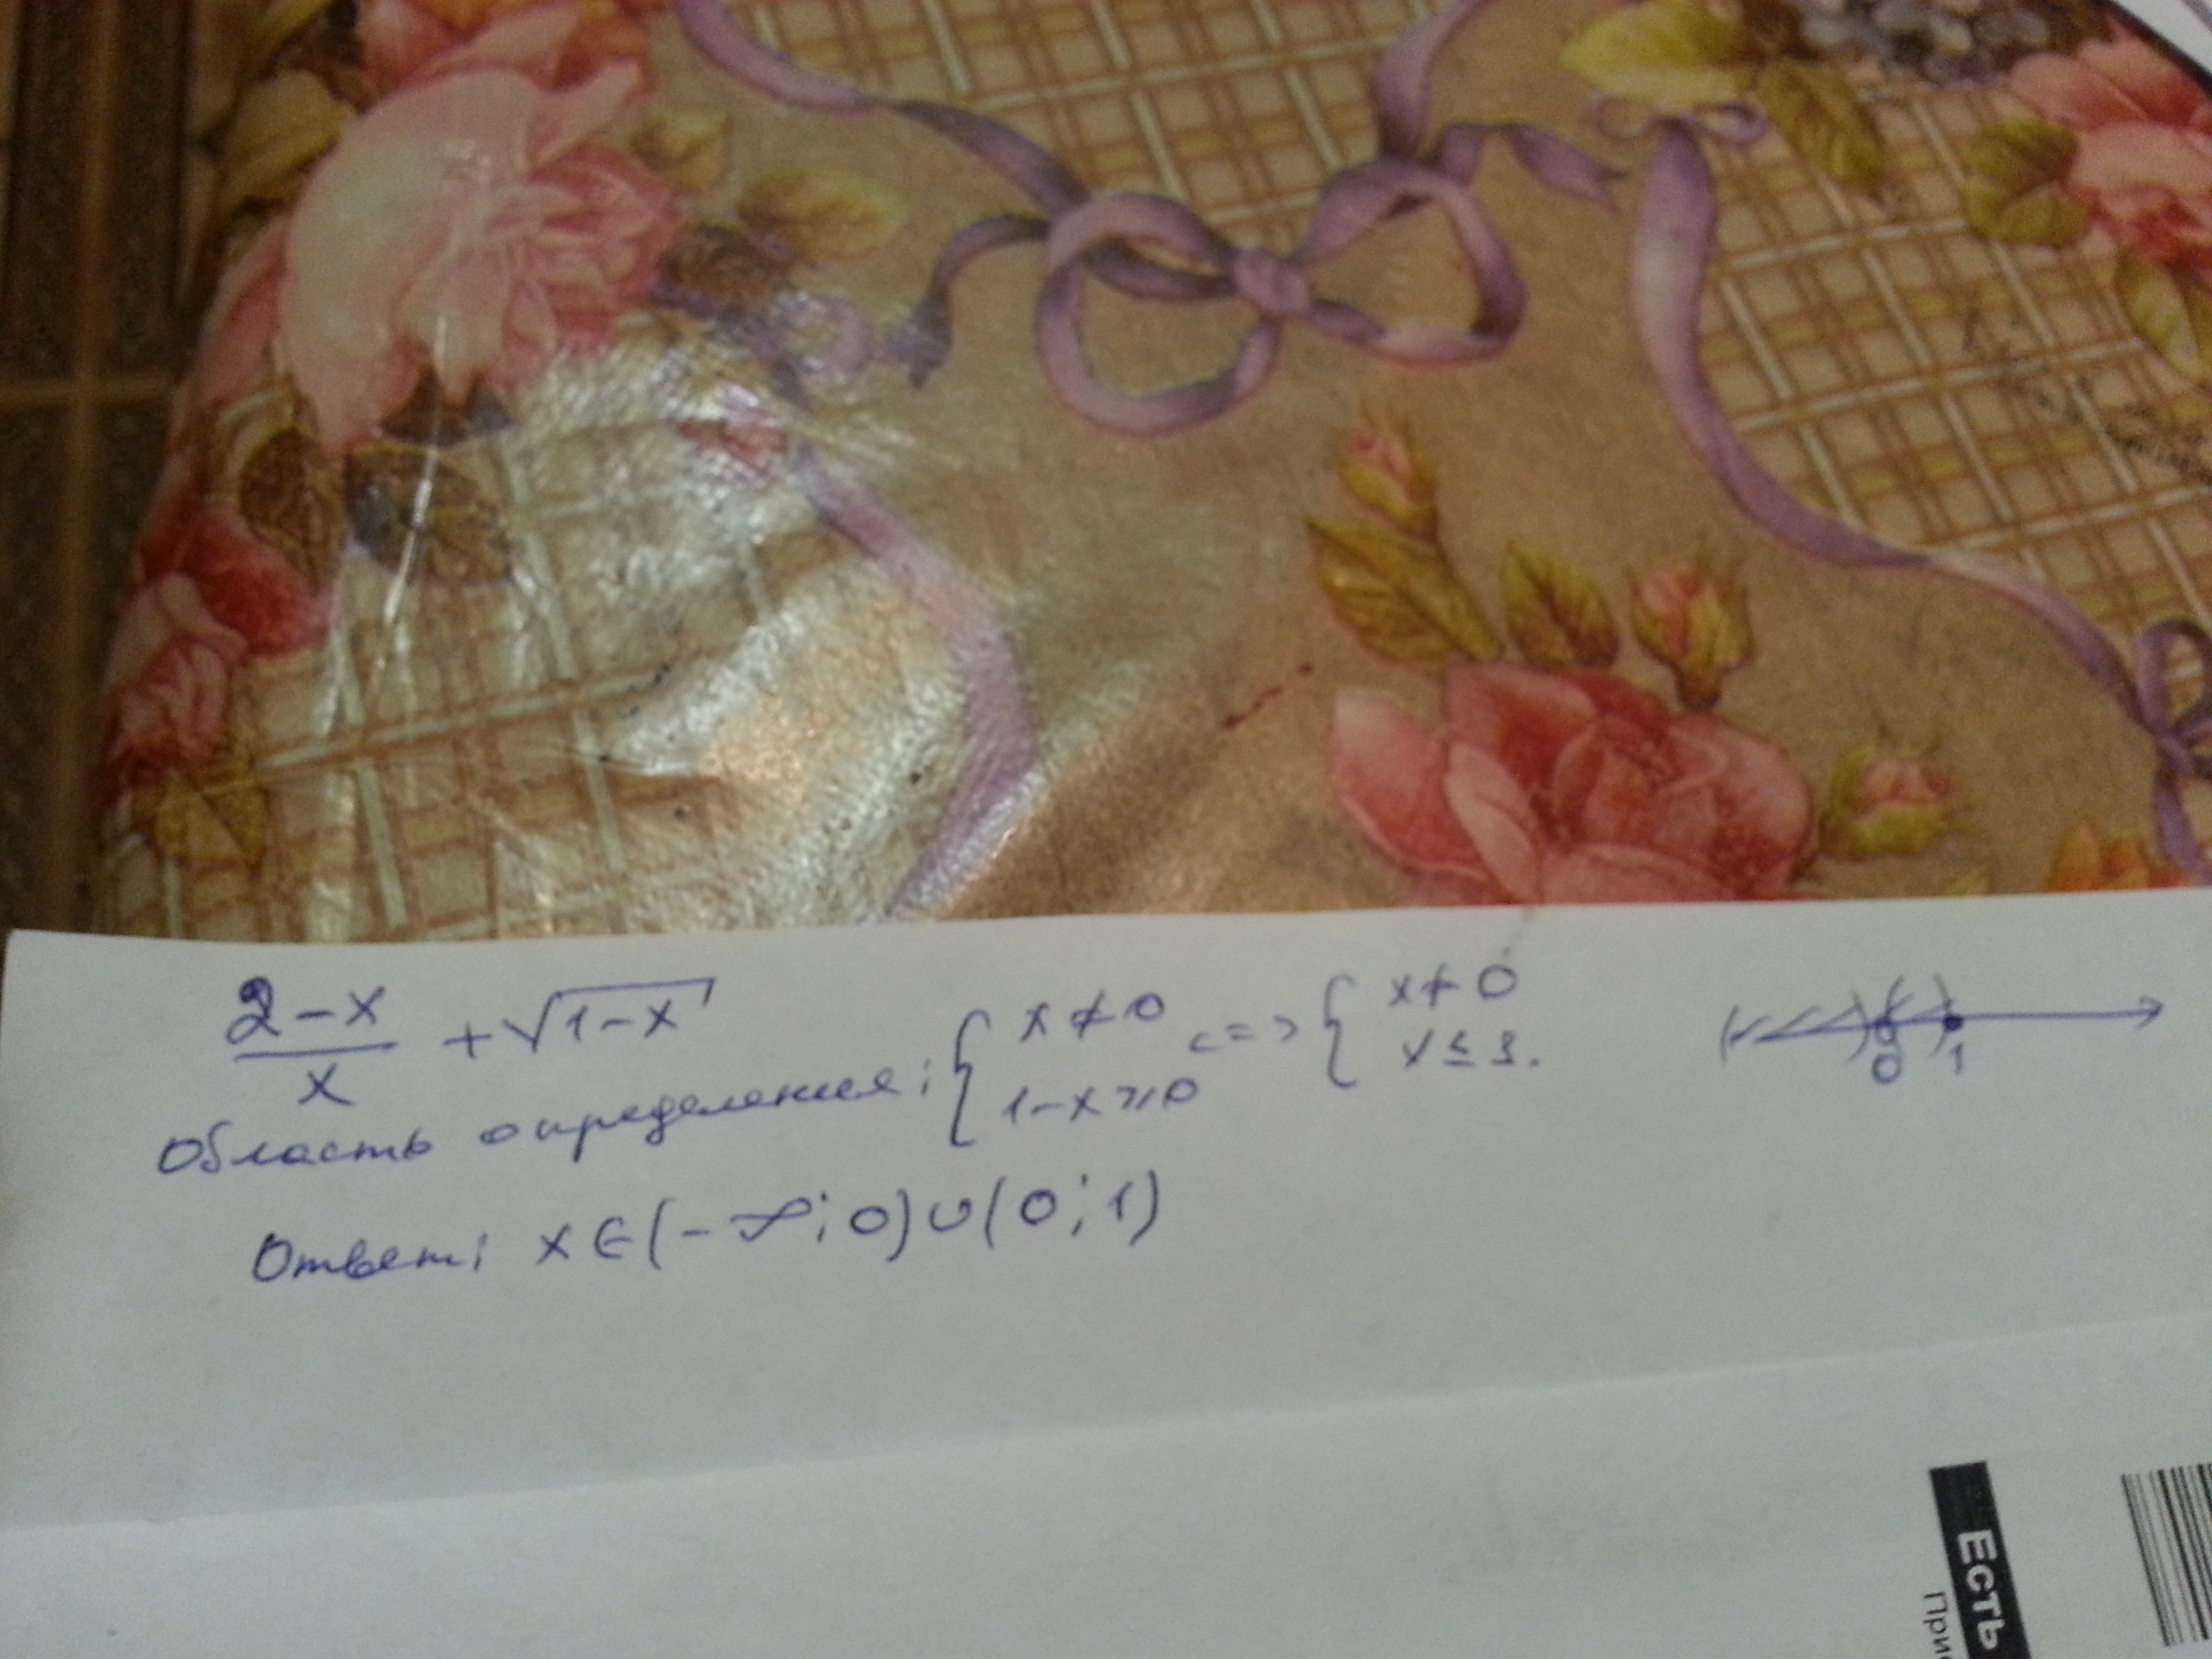 (2-x)/x + √(1-x)
Область определения: { x ≠ 0 <=> { x ≠ 0
1-x ≥ 0 x ≤ 1.
0 1
Ответ: x ∈ (-∞; 0) ∪ (0; 1)
Есть
При